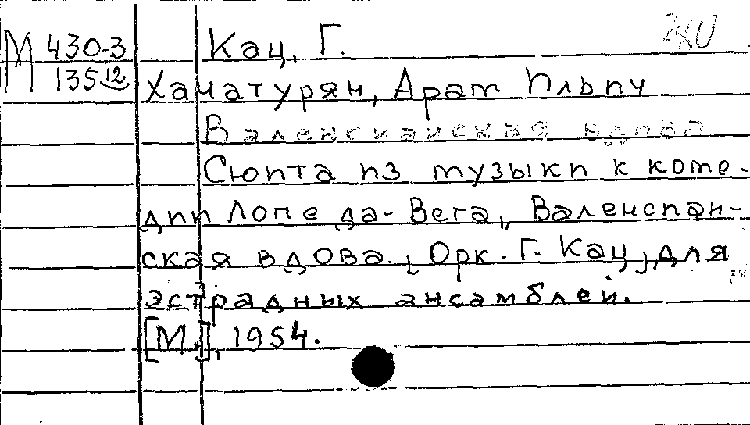 М 430-3
135 12
Кац, Г.
Хачатурян, Арам Ильич
Валенсианская вдова
Сюита из музыки к коме-
дии Лопе да-Вега „Валенсиан-
ская вдова„. Орк. Г. Кац, для
эстрадных ансамблей.
[М.], 1954.